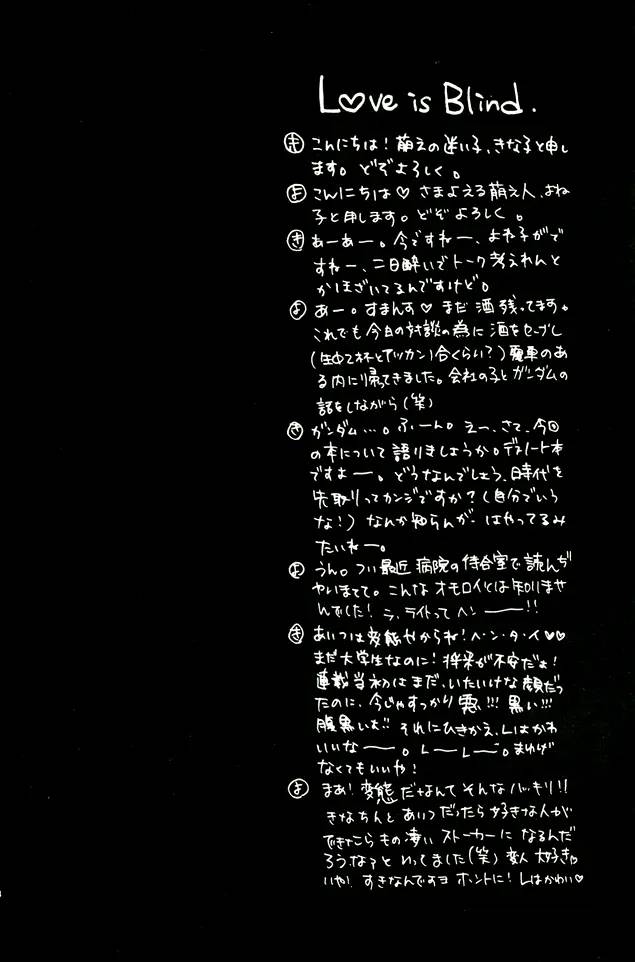 Love is Blind.
き こんにちは！萌えの迷い子、きな子と申し
ます。どぞよろしく。
よ こんにちは♡さまよえる萌え人、よね
子と申します。どぞよろしく。
き あーあー。今ですねー、よね子がで
すねー、二日酔いでトーク考えれんと
かほざいてるんですけど。
よ あー。すまんす♡まだ酒残ってます。
これでも今日の対談の為に酒をセーブし
(生中2杯とアツカン1合くらい？)電車のあ
る内に帰ってきました。会社の子とガンダムの
話をしながら(笑)
き ガンダム…。ふーん。えー、さて、今回
の本について語りましょうか。デスノート本
ですよー。どうなんでしょう、時代を
先取りってカンジですか？(自分でいう
な！)なんか知らんが、はやってるみ
たいねー。
よ うん。つい最近病院の待合室で読んぢ
やいまてて。こんなオモロイとは知りませ
んでした！ラ、ライトってヘンーー!!
き あいつは変態やからね！ヘ・ン・タ・イ♡♡
まだ大学生なのに！将来が不安だよ！
連載当初はまだ、いたいけな顔だっ
たのに、今じゃすっかり悪!!!黒い!!!
腹黒いよ!!それにひきかえ、Lはかわ
いいなーー。LーLー。まゆげ
なくてもいいや！
よ まあ！変態だなんてそんなハッキリ!!
きなちんとあいつだったら好きな人が
できたらもの凄いストーカーになるんだ
ろうなぁといってました(笑)変人大好き
いや！すきなんですヨホントに！Lはかわい♡